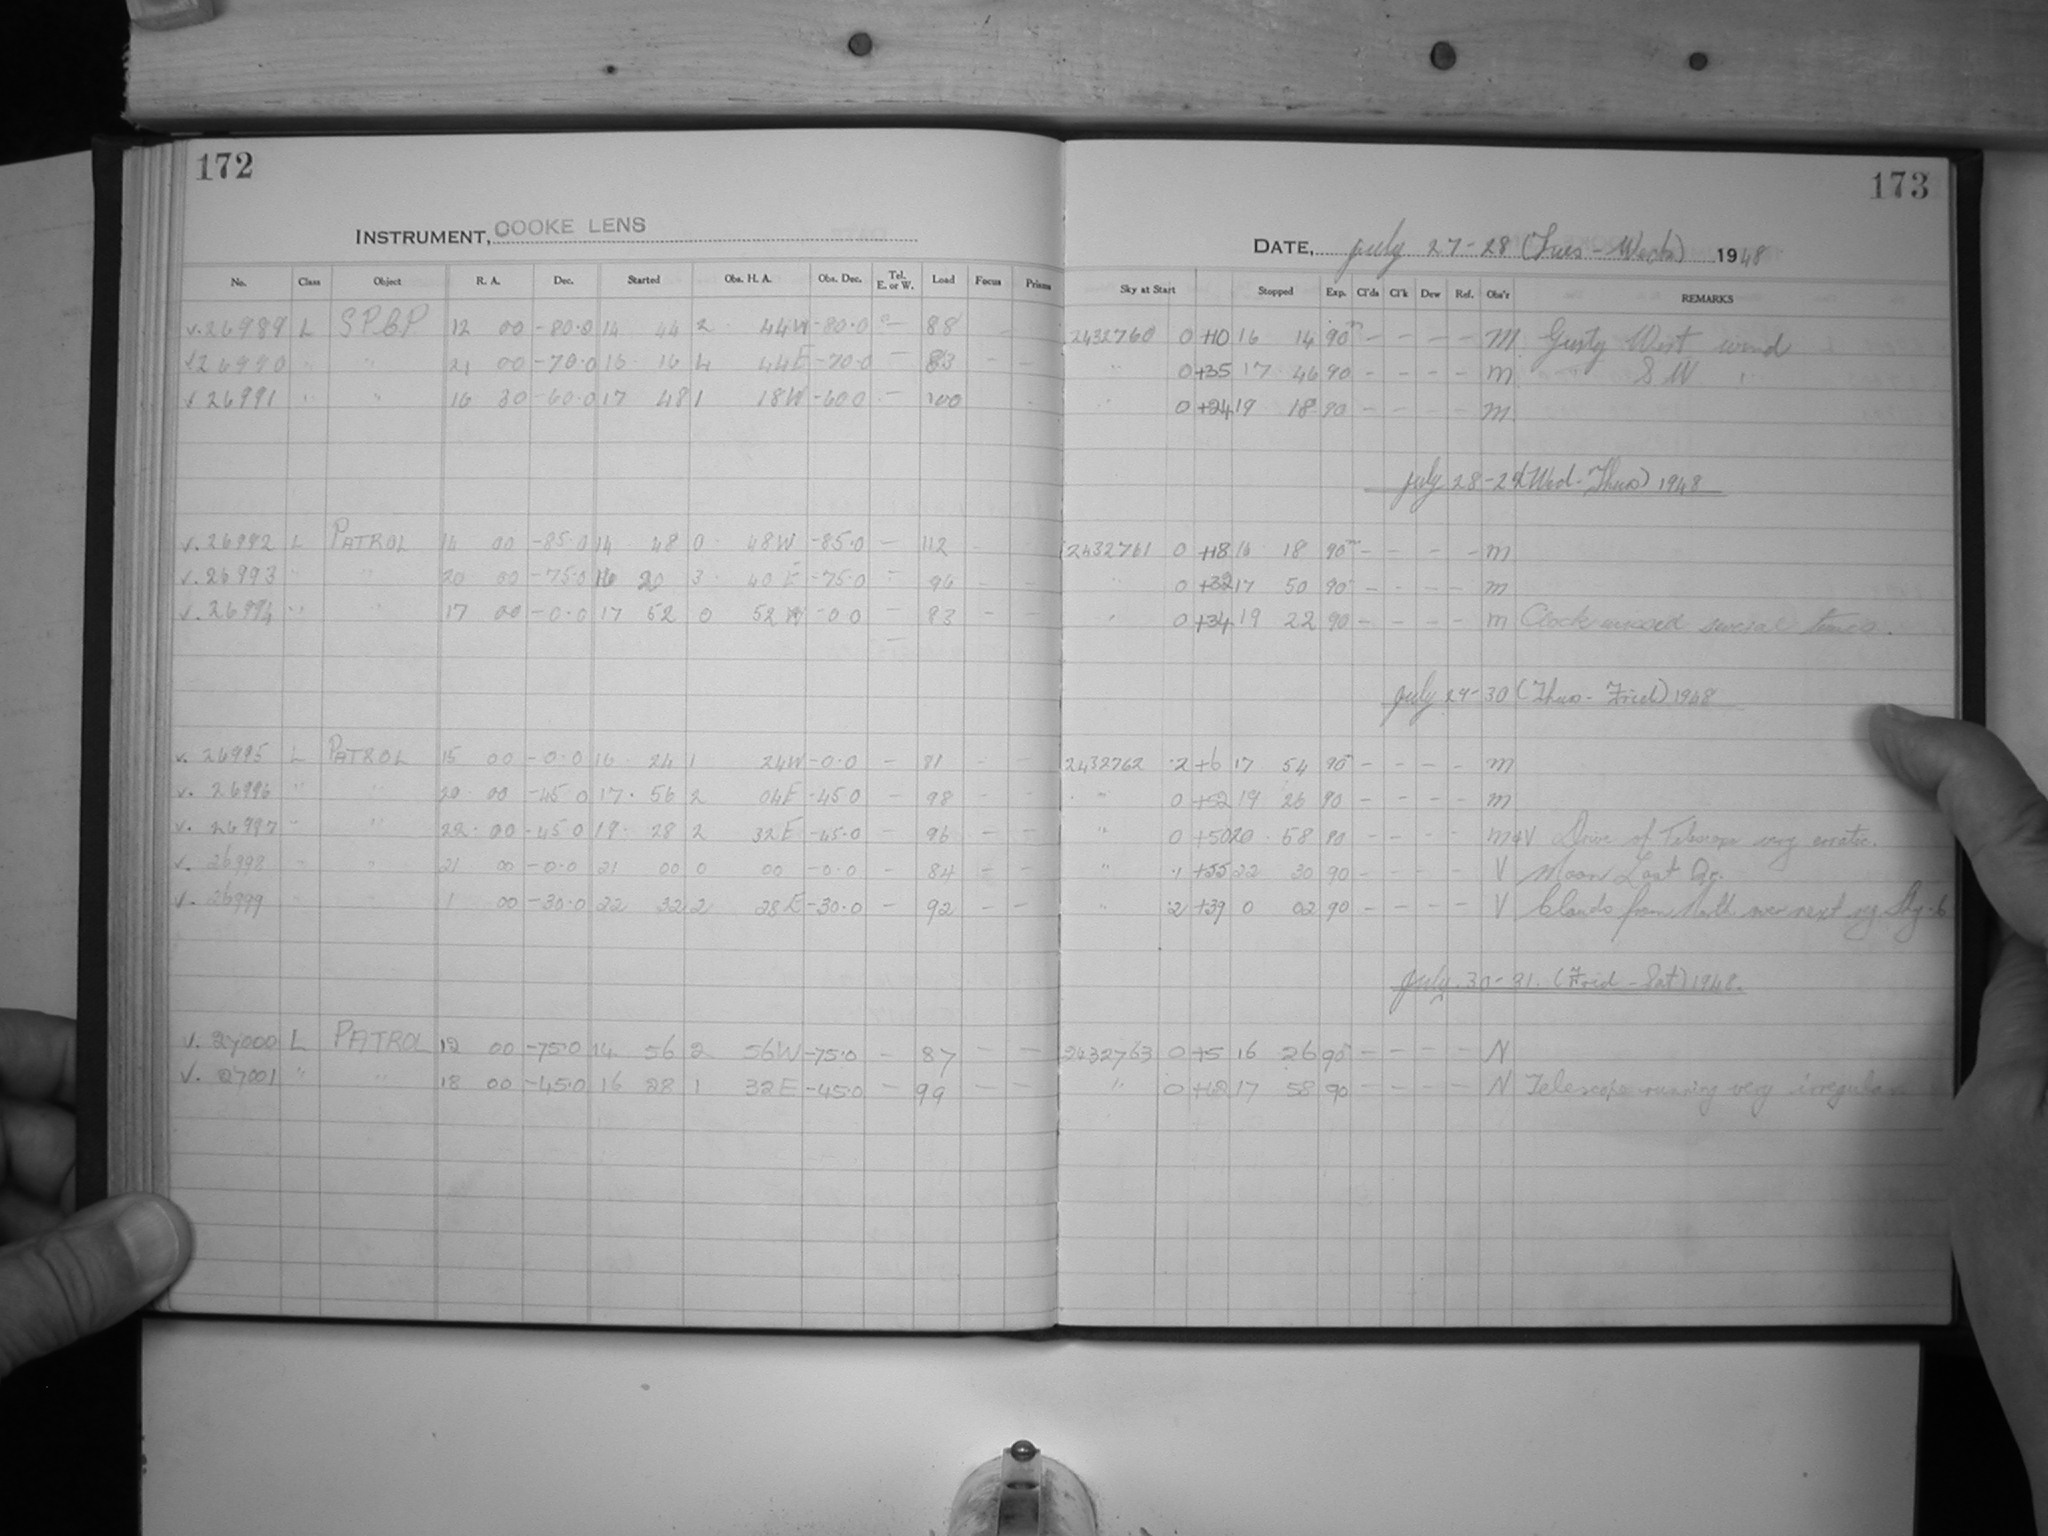 172
INSTRUMENT, COOKE LENS
No. Class Object R. A. Dec. Started Obs. H. A. Obs. Dec. Tel. E. or W. Load Focus Prisms
v. 26989 L S.P.B.P 12 00 -80.0 14 44 2 44W -80.0 — 88
v 26990 " " 21 00 -70.0 16 16 4 44E -70.0 — 83 — —
v 26991 " " 16 30 -60.0 17 48 1 18W -60.0 — 100
v. 26992 L PATROL 14 00 -85.0 14 48 0 48W -85.0 — 112
v. 26993 " " 20 00 -75.0 16 20 3 40 E -75.0 — 96 — —
v. 26994 " " 17 00 -0.0 17 52 0 52W -0.0 — 83 — —
v. 26995 L PATROL 15 00 -0.0 16 24 1 24W -0.0 — 81 — —
v. 26996 " " 20 00 -45.0 17 56 2 04E -45.0 — 98 — —
v. 26997 " " 22 00 -45.0 19 28 2 32E -45.0 — 96 — —
v. 26998 " " 21 00 -0.0 21 00 0 00 -0.0 — 84 — —
v. 26999 " " 1 00 -30.0 22 32 2 28E -30.0 — 92 — —
v. 27000 L PATROL 12 00 -75.0 14 56 2 56W -75.0 — 87 — —
v. 27001 " " 18 00 -45.0 16 28 1 32E -45.0 — 99 — —
173
DATE, July 27-28 (Tues - Weds) 1948
Sky at Start Stopped Exp. Cl'ds Cl'k Dew Ref. Obs'r REMARKS
2432760 0 +10 16 14 90m — — — — M. Gusty West wind
" 0 +35 17 46 90 — — — — M " S W "
" 0 +24 19 18 90 — — — — M.
July 28-29 (Wed - Thurs) 1948
2432761 0 +18 16 18 90m — — — — M
" 0 +32 17 50 90 — — — — M
" 0 +34 19 22 90 — — — — M Clock missed several times.
July 29-30 (Thurs - Frid) 1948
2432762 .2 +6 17 54 90 — — — — M
" 0 +52 19 26 90 — — — — M
" 0 +50 20 58 90 — — — — M&V Drive of Telescope very erratic.
" .1 +55 22 30 90 — — — — V Moon Last Qr.
" .2 +39 0 02 90 — — — — V Clouds from North over next rg. Sky .6
July 30-31. (Frid - Sat) 1948.
2432763 0 +5 16 26 90 — — — — N
" 0 +12 17 58 90 — — — — N Telescope running very irregular